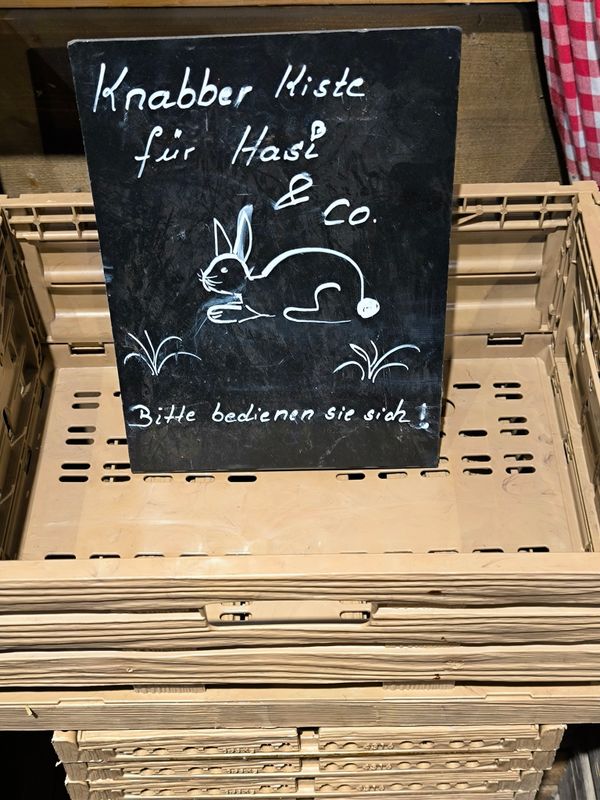 Knabber Kiste
für Hasi
& Co.
Bitte bedienen sie sich!